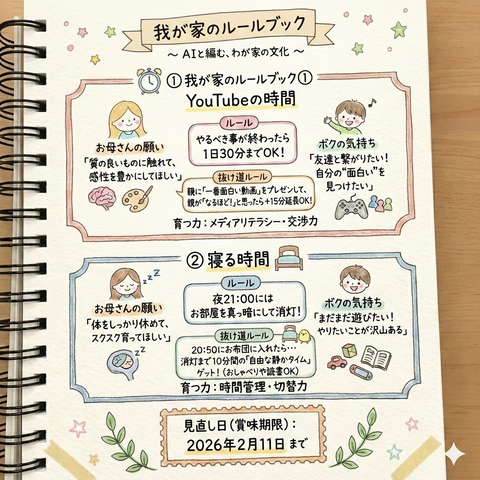 我が家のルールブック
～ AIと編む、わが家の文化 ～
① 我が家のルールブック①
YouTubeの時間
お母さんの願い
「質の良いものに触れて、
感性を豊かにしてほしい」
ルール
やるべき事が終わったら
1日30分までOK!
抜け道ルール
親に「一番面白い動画」をプレゼンして、
親が「なるほど!」と思ったら+15分延長OK!
ボクの気持ち
「友達と繋がりたい!
自分の“面白い”を
見つけたい」
育つ力:メディアリテラシー・交渉力
② 寝る時間
お母さんの願い
「体をしっかり休めて、
スクスク育ってほしい」
zzz
ルール
夜21:00には
お部屋を真っ暗にして消灯!
抜け道ルール
20:50にお布団に入れたら…
消灯まで10分間の「自由な静かタイム」
ゲット!(おしゃべりや読書OK)
ボクの気持ち
「まだまだ遊びたい!
やりたいことが沢山ある」
育つ力:時間管理・切替力
見直し日(賞味期限):
2026年2月11日 まで